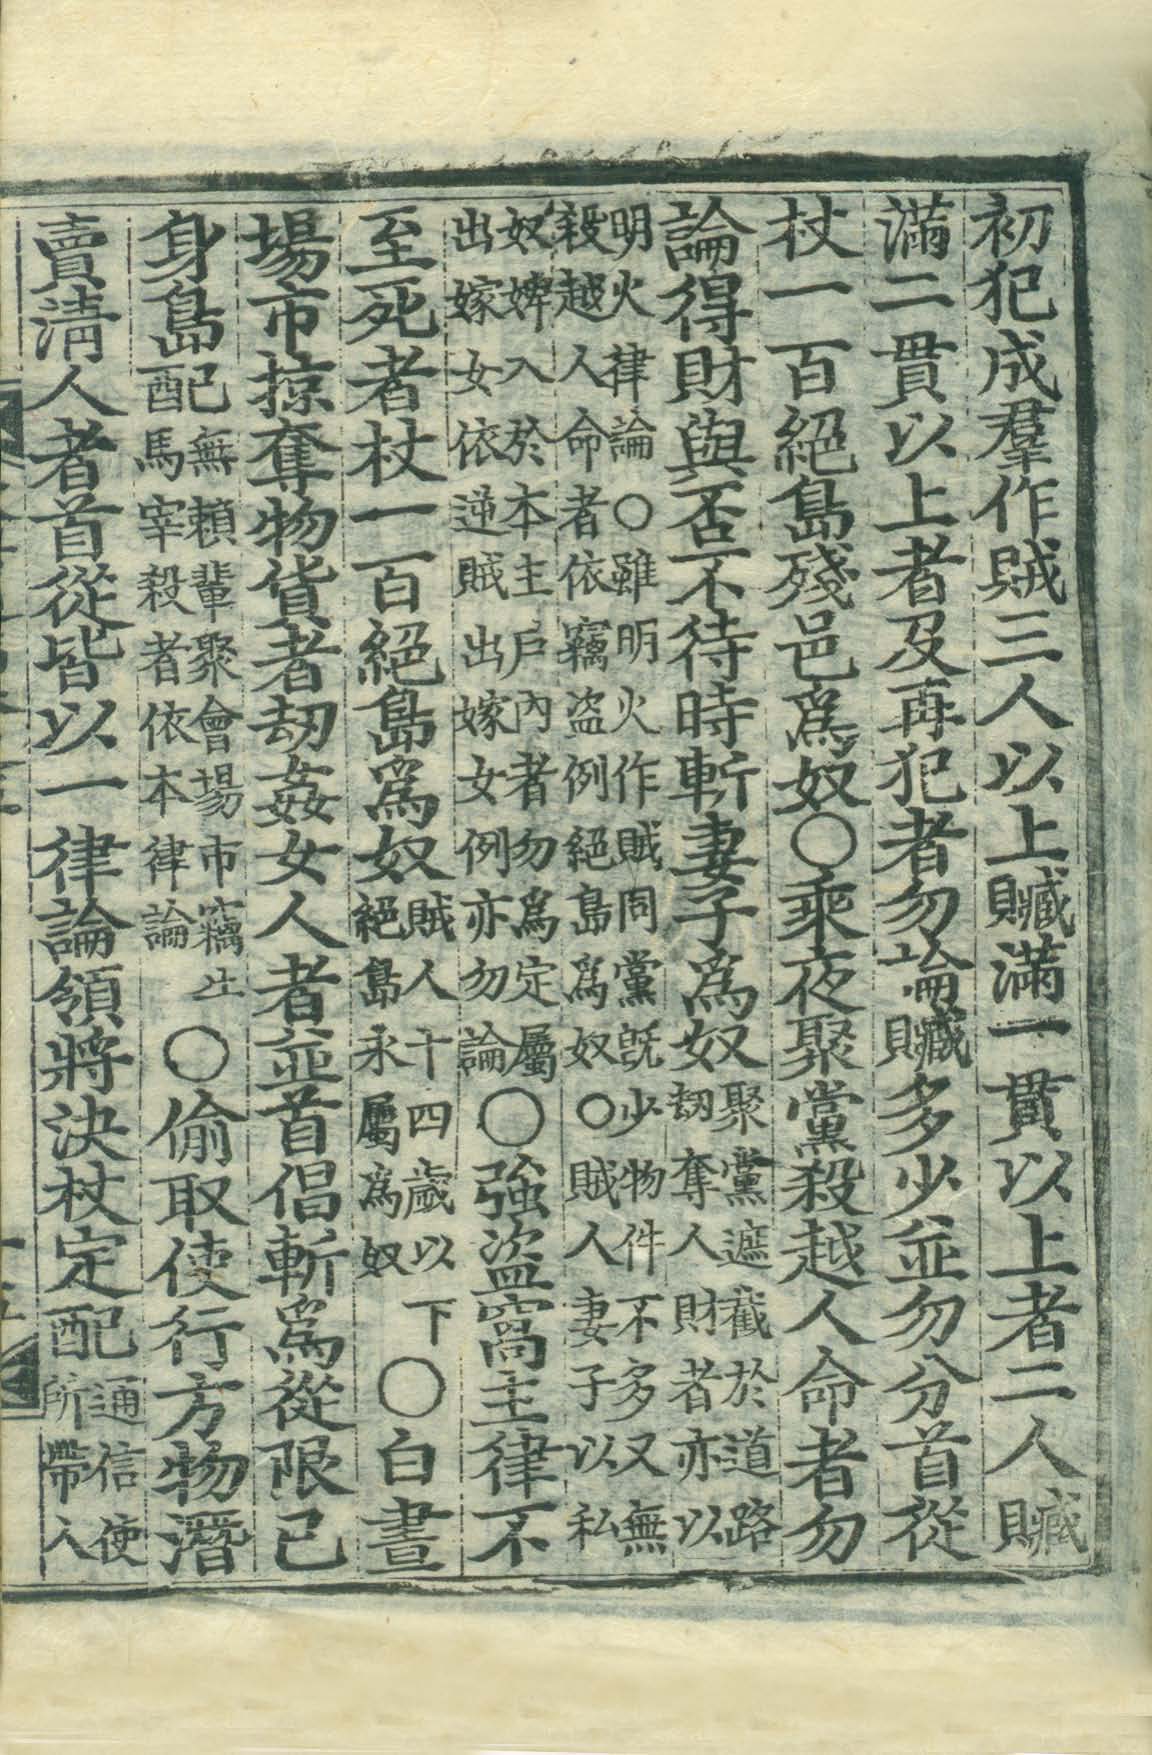 初犯成羣作賊三人以上贓滿一貫以上者二人贓
滿二貫以上者及再犯者勿論贓多少並勿分首從
杖一百絕島殘邑爲奴○乘夜聚黨殺越人命者勿
論得財與否不待時斬妻子爲奴聚黨遮截於道路
劫奪人財者亦以
明火律論○雖明火作賊同黨旣少物件不多又無
殺越人命者依竊盜例絕島爲奴○賊人妻子以私
奴婢入於本主戶內者勿爲定屬
出嫁女依逆賊出嫁女例亦勿論○強盜窩主律不
至死者杖一百絕島爲奴賊人十四歲以下
絕島永屬爲奴○白晝
場市掠奪物貨者劫姦女人者並首倡斬爲從限己
身島配無賴輩聚會場市竊
馬宰殺者依本律論○偷取使行方物潛
賣淸人者首從皆以一律論領將決杖定配通信使
所帶人